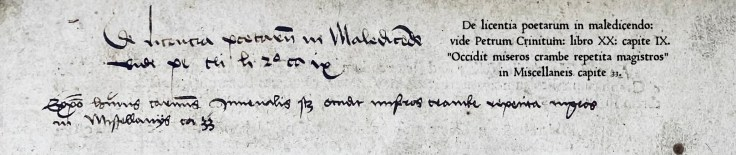 De licentia poetarū in Maledicēdo
Vide pe cri li 20 ca ix
huius carminis Iuuenalis occidit miseros crambe repetita mgros
in Miscellanijs ca 33
De licentia poetarum in maledicendo:
vide Petrum Crinitum: libro XX: capite IX.
"Occidit miseros crambe repetita magistros"
in Miscellaneis capite 33.